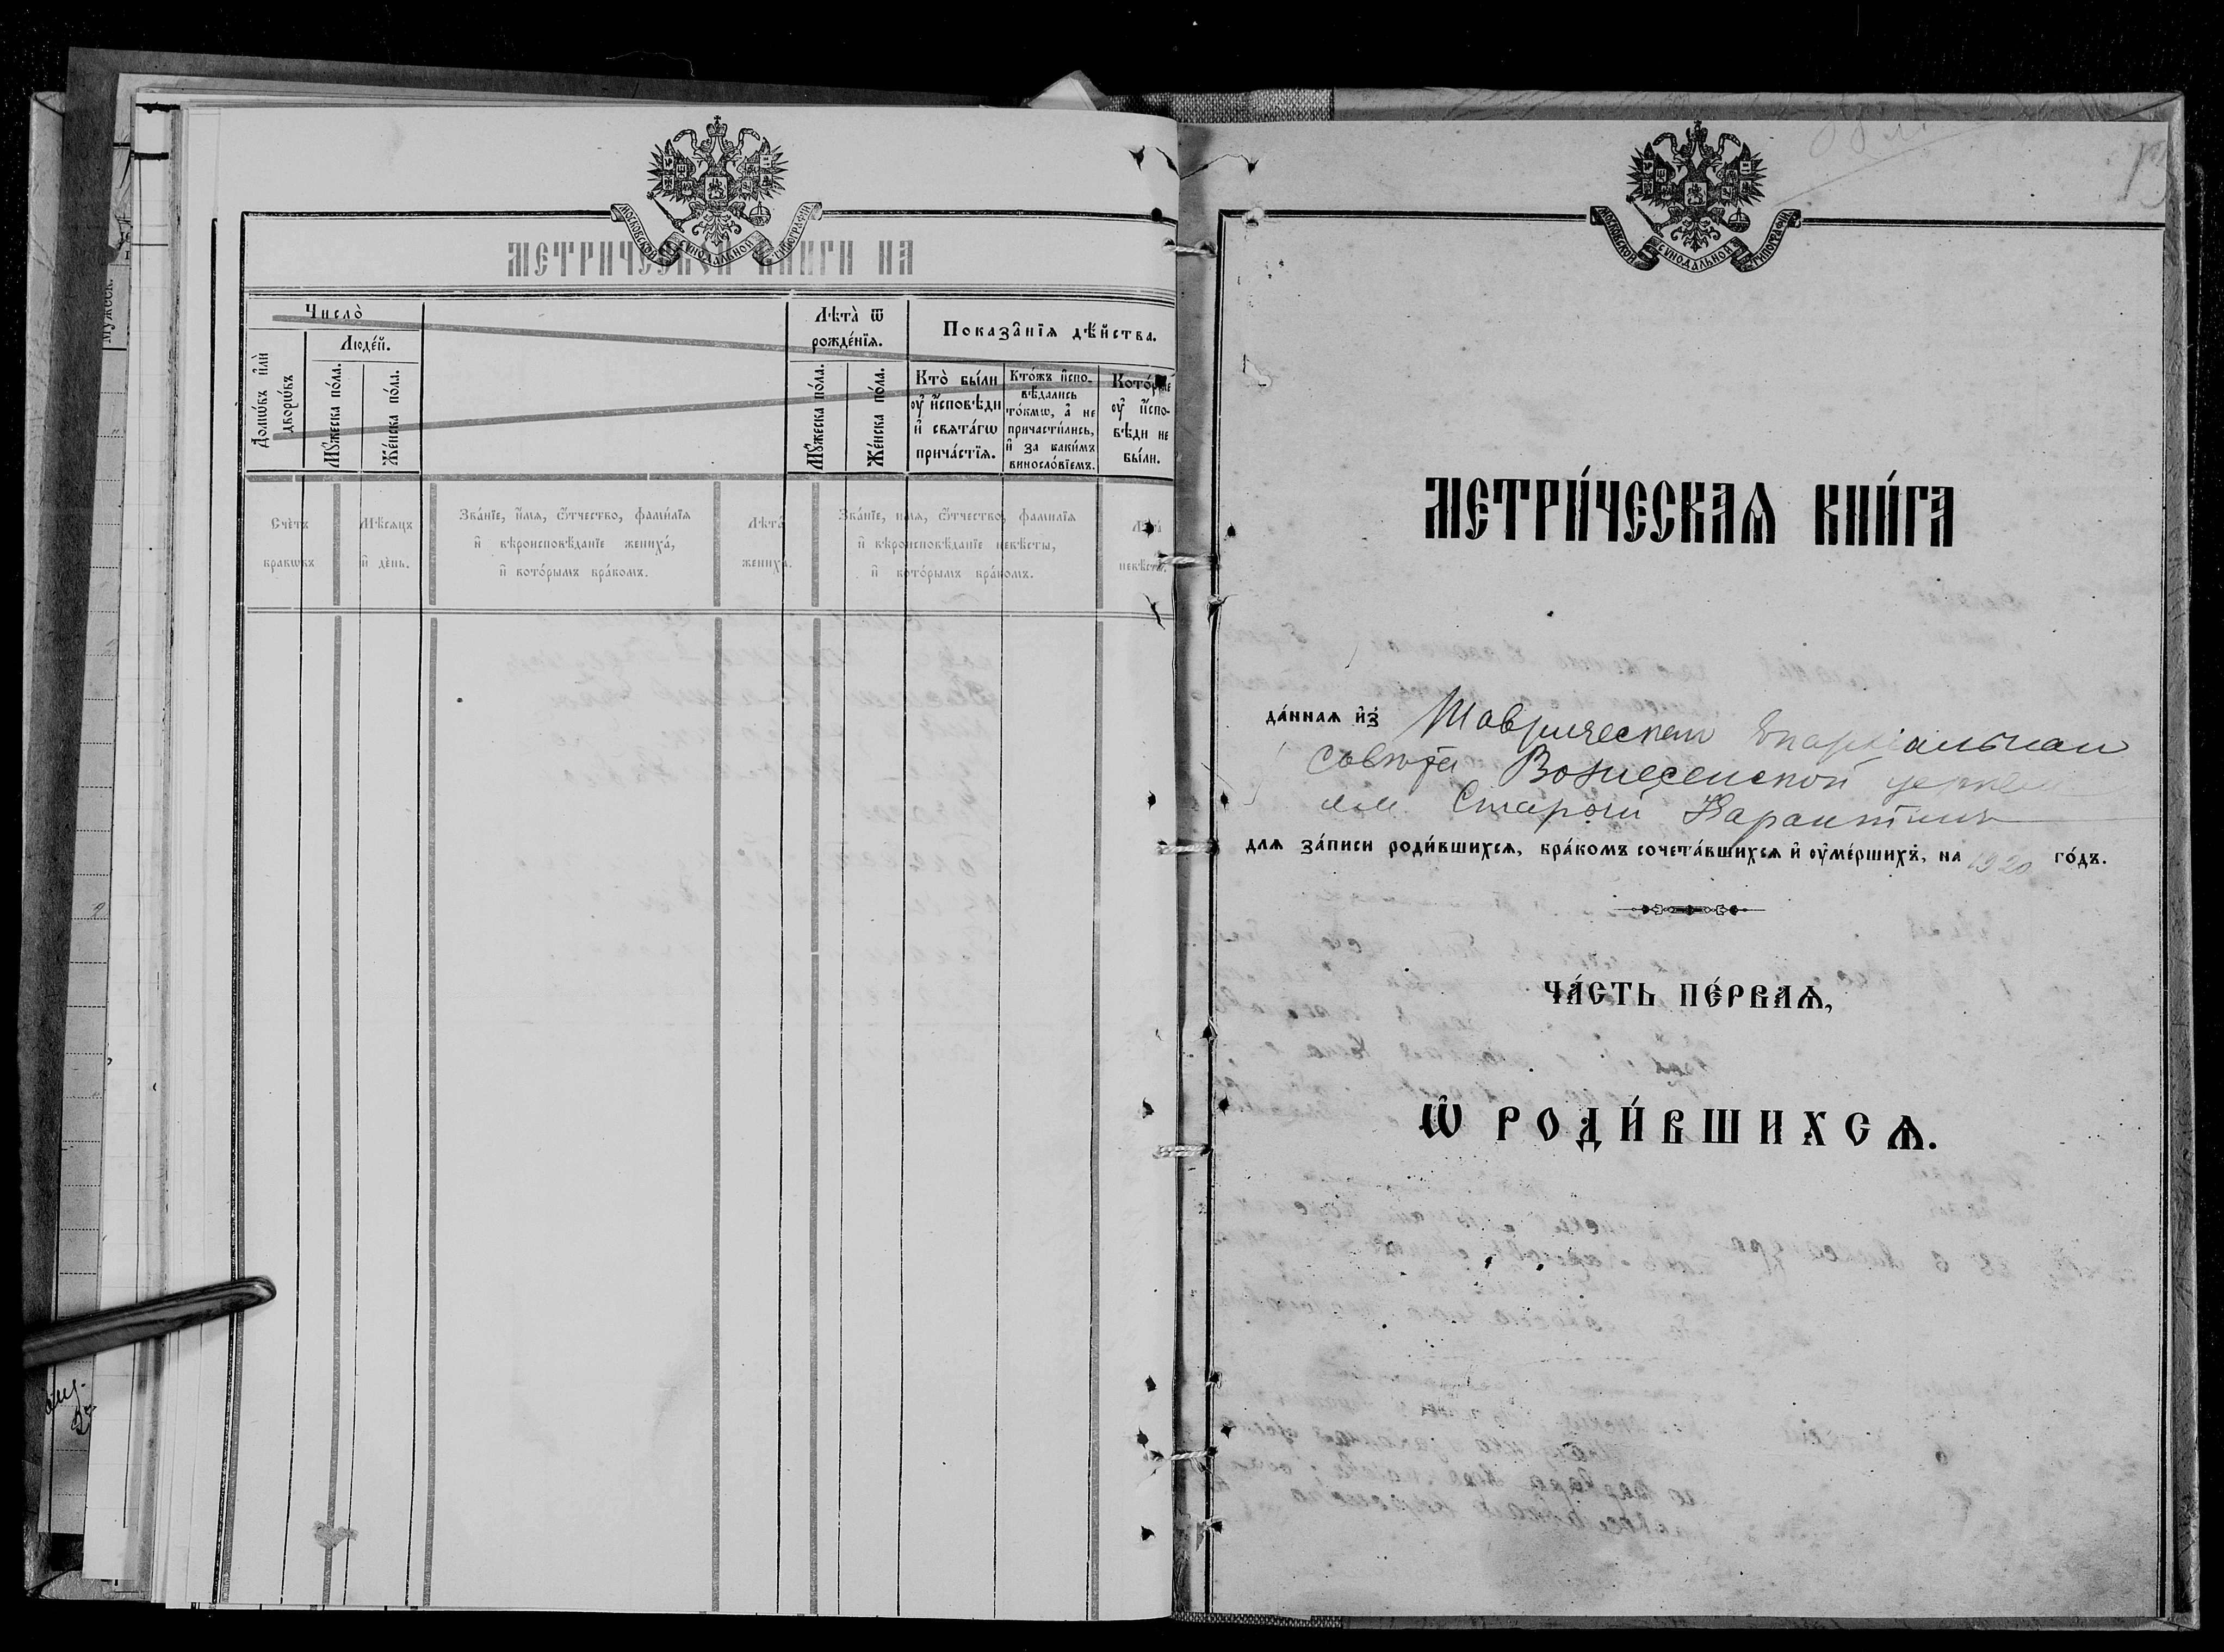 МОСКОВСКОЙ СѴНОДАЛЬНОЙ ТИПОГРАФІИ
МЕТРИЧЕСКОЙ КНИГИ НА
Число̀
Лѣта̀ ѿ
рожде́нїѧ.
Показа̑нїѧ дѣ́йства.
Домѡ́въ и҆лѝ
дворѡ́въ
Люде́й.
Мꙋ́жеска по́ла.
Же́нска по́ла.
Мꙋ́жеска по́ла.
Же́нска по́ла.
Кто̀ бы́ли
оу҆ и҆сповѣ́ди
и҆ свѧта́гѡ
прича́стїѧ.
Кто́жъ и҆спо-
вѣ́дались
то́кмѡ, а҆ не
причасти́лись,
и҆ за каки́мъ
винослові́емъ.
Кото́рые
оу҆ и҆спо-
вѣ́ди не
бы́ли.
Сче́тъ
бракѡвъ
Мѣ́сѧцъ
и҆ де́нь.
Зва́нїе, и҆́мѧ, ѻ҆́тчество, фами́лїѧ
и҆ вѣроисповѣ́данїе жениха́,
и҆ кото́рымъ бра́комъ.
Лѣта̀
жениха̀.
Зва́нїе, и҆́мѧ, ѻ҆́тчество, фами́лїѧ
и҆ вѣроисповѣ́данїе невѣ́сты,
и҆ кото́рымъ бра́комъ.
Лѣта̀
невѣ́сты.
МОСКОВСКОЙ СѴНОДАЛЬНОЙ ТИПОГРАФІИ
МЕТРИ́ЧЕСКАѦ КНИ́ГА
да́ннаѧ и҆з̾ Таврическаго Епархіальнаго
Совѣта Вознесенской церкви
Старый Карантинъ
длѧ за́писи роди́вшихсѧ, бра́комъ сочета́вшихсѧ и҆ оу҆ме́ршихъ, на 1920 го́дъ.
ЧА́СТЬ ПЕ́РВАѦ,
Ѡ҆ РОДИ́ВШИХСѦ.